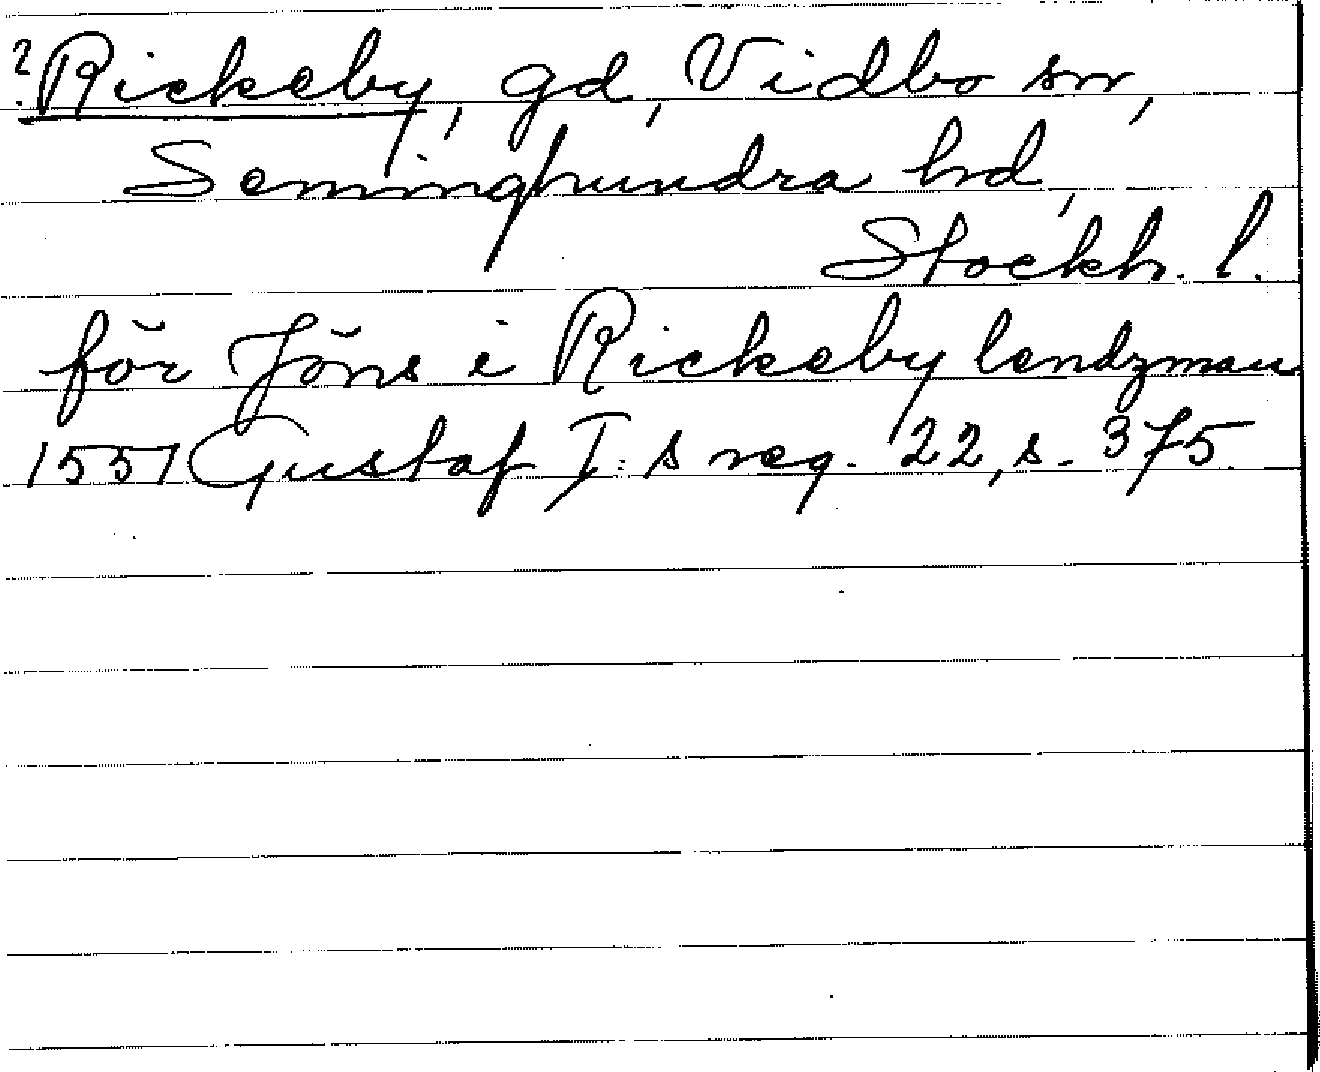 ? Rickeby, gd, Vidbo sn,
Seminghundra hd,
Stockh. l.
för Jöns i Rickeby lendzman
1551 Gustaf I:s reg. 22, s. 375